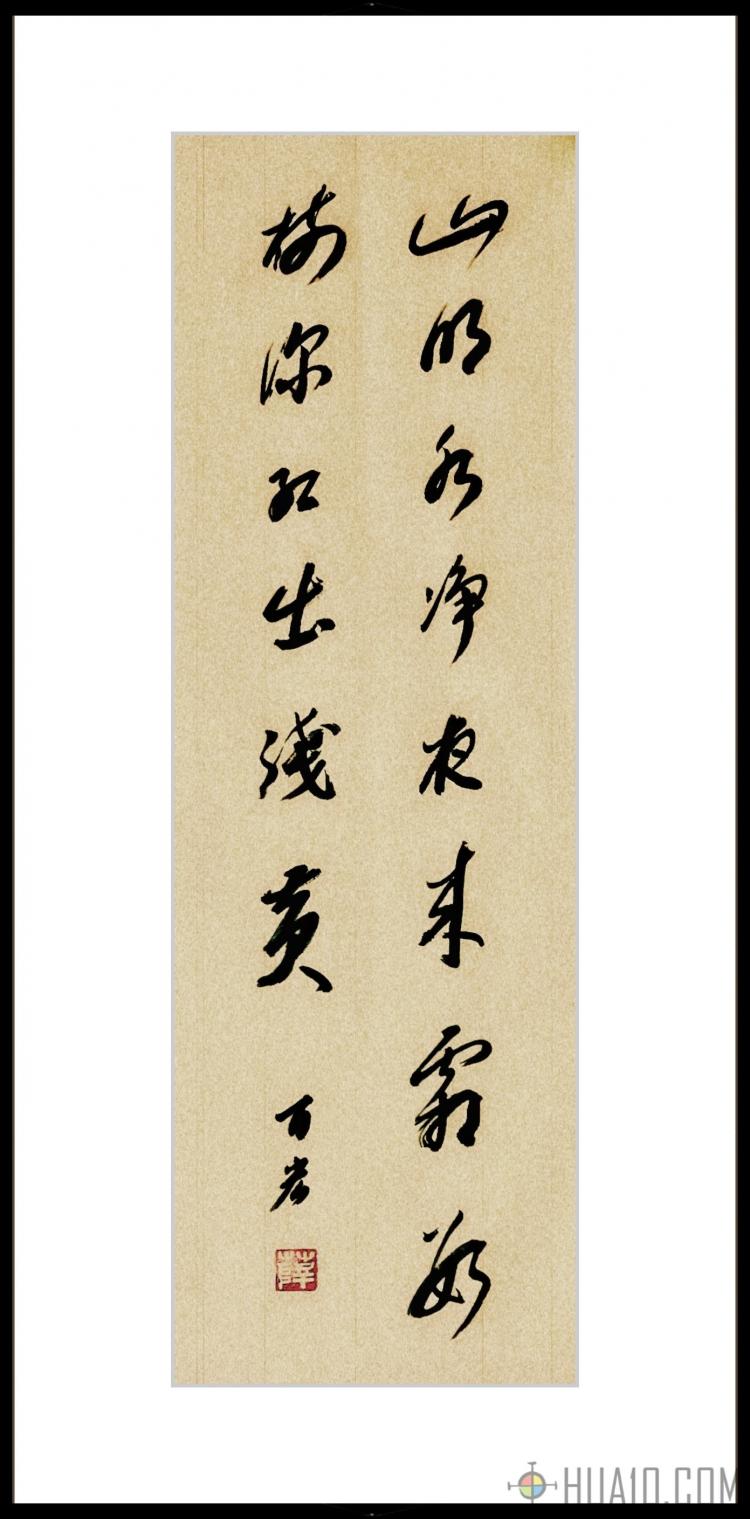 山明水净夜来霜数
树深红出淺黄
百
薛
HUA10.COM